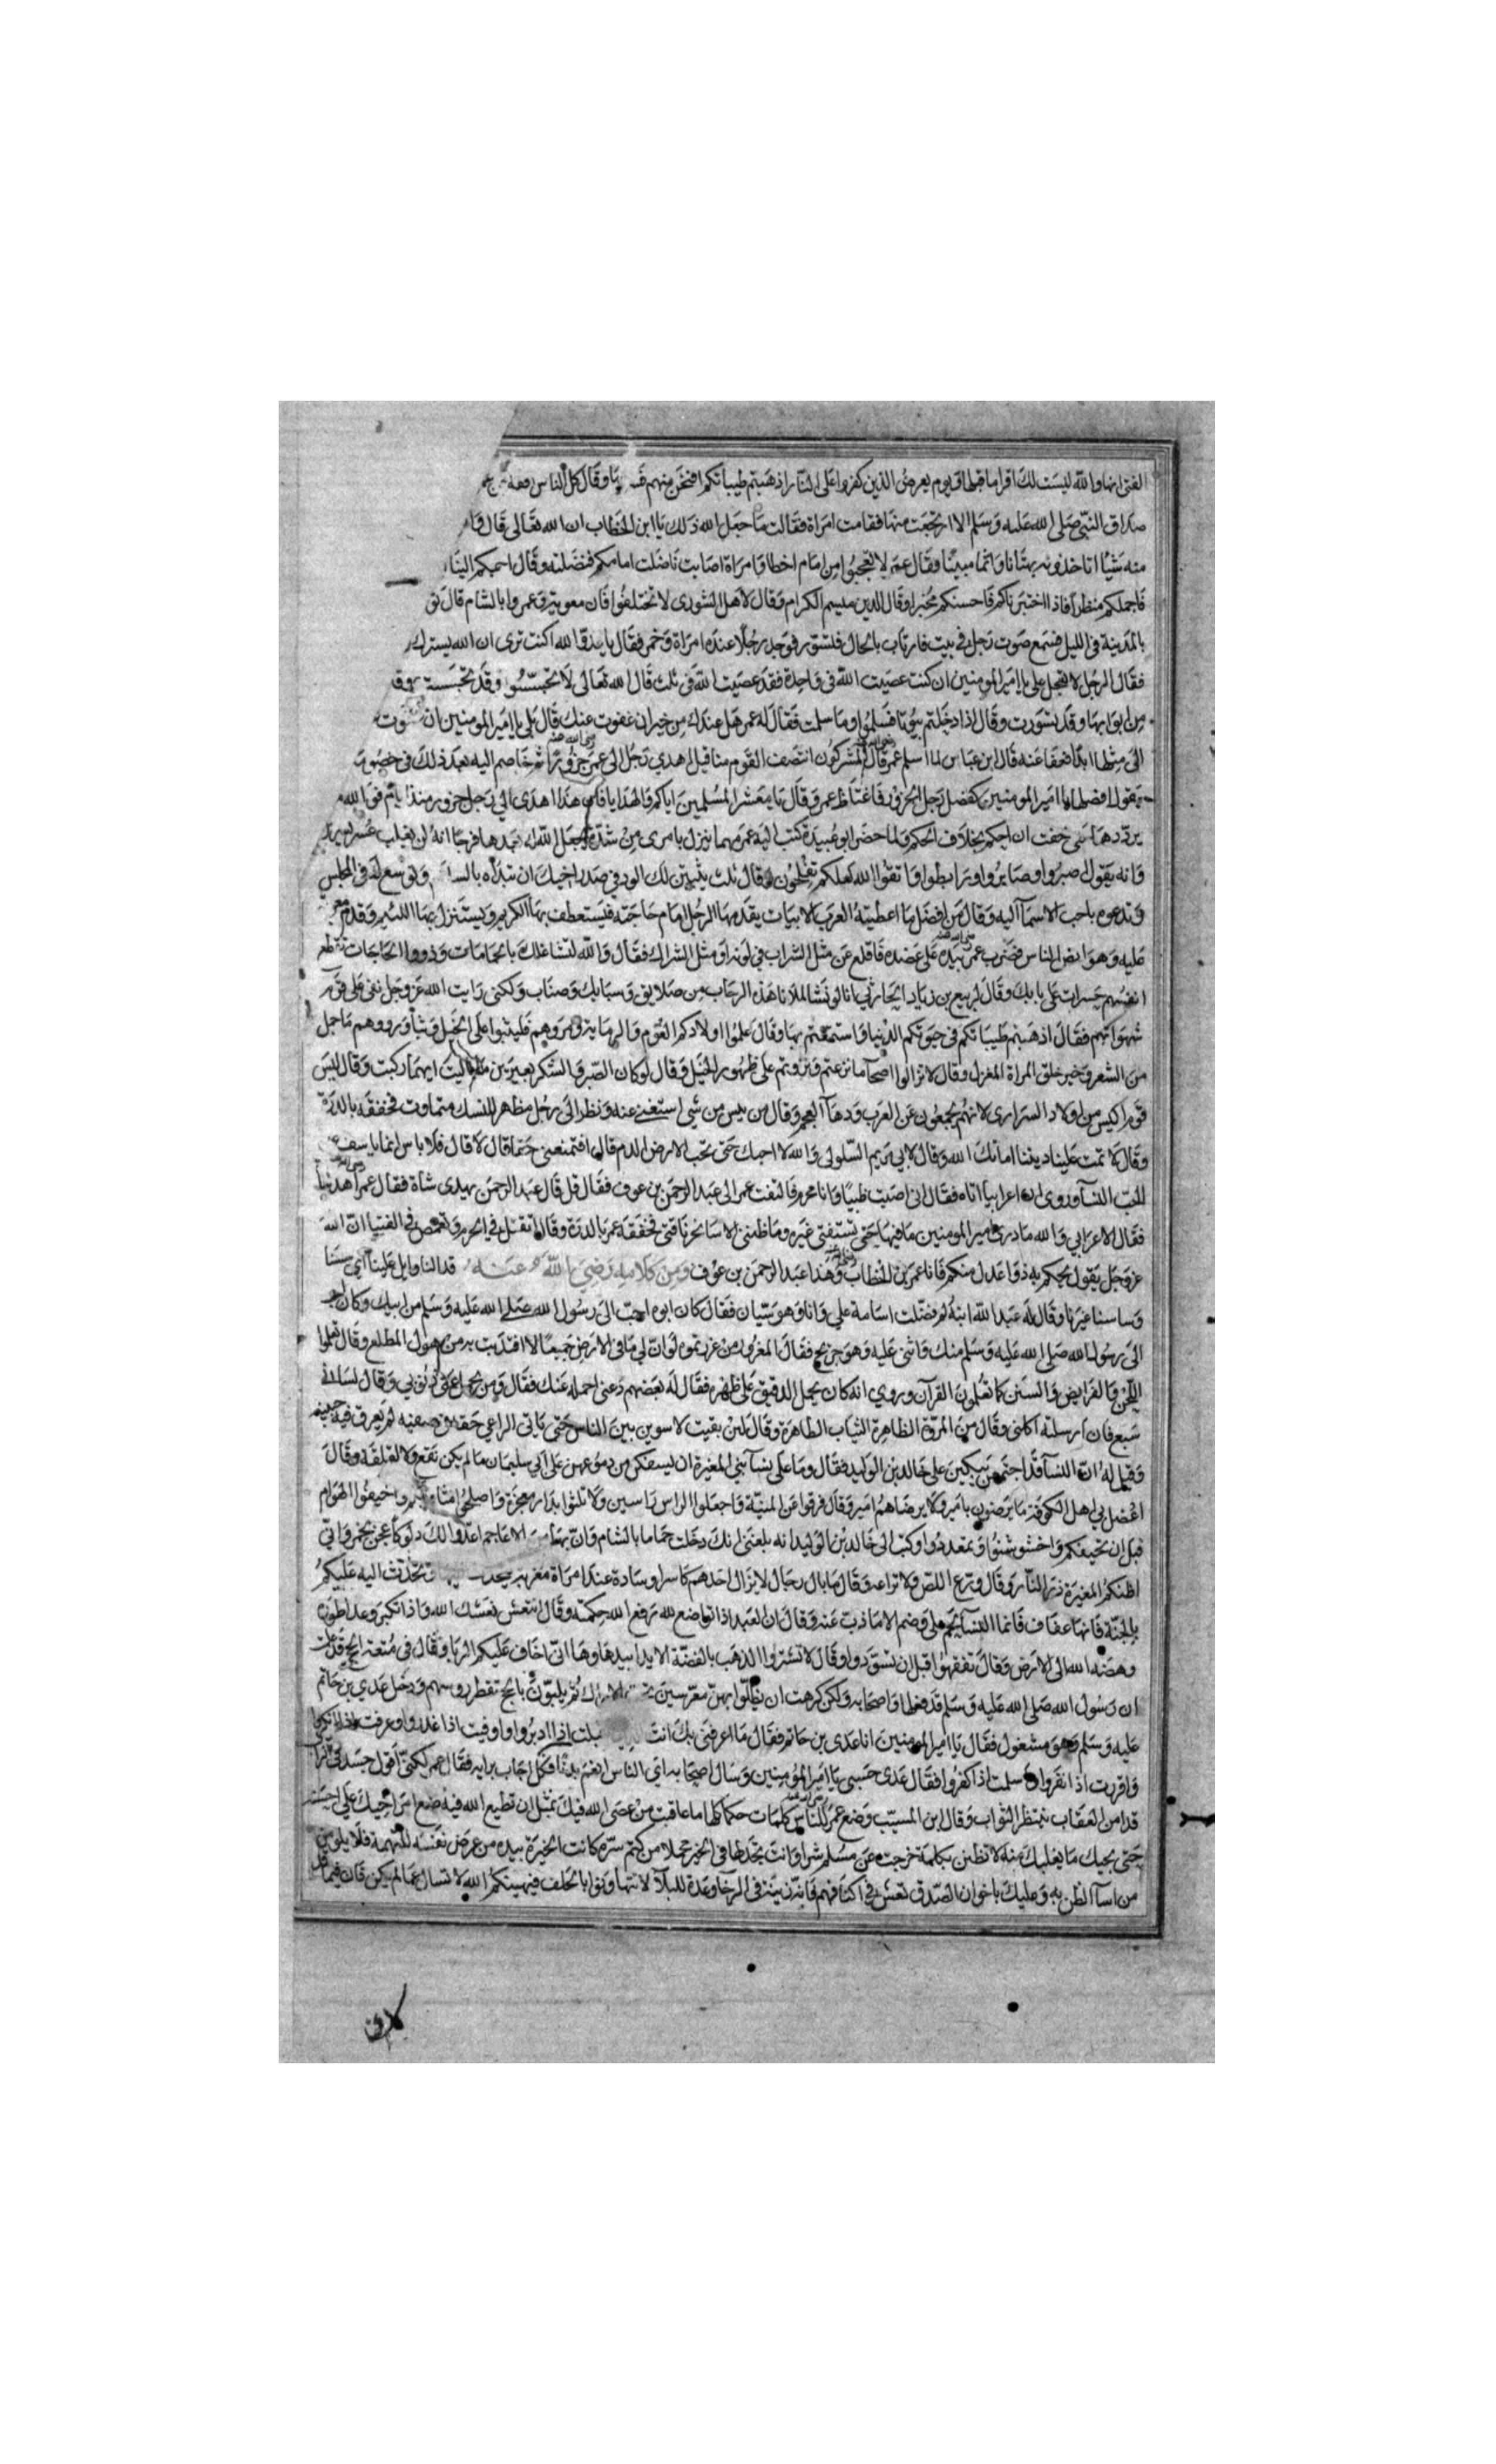 الفتى انها والله ليست لك اقرا ما قبلها ويوم يعرض الذين كفروا على النار اذهبتم طيباتكم افنحن منهم وقال كل الناس افقه
صداق النبي صلى الله عليه وسلم الا ارتجعت منها فقامت امراة فقالت ما جعل الله ذلك يا ابن الخطاب ان الله تعالى قال
منه شيئا اتاخذونه بهتانا واثما مبينا وقال عمر لا تعجبوا من امام اخطا وامراة اصابت ناضلت امامكم فنضلته وقال احبكم الينا
فاجملكم منظرا فاذا اختبرناكم فاحسنكم مخبرا وقال الدين ميسم الكرام وقال لاهل الشورى لا تختلفوا فان معوية وعمروا بالشام قال
بالمدينة في الليل فسمع صوت رجل في بيت فارتاب بالحال فتسور فوجد رجلا عنده امراة وخمر فقال يا عدو الله اكنت ترى ان الله يسترك
فقال الرجل لا تعجل علي يا امير المومنين ان كنت عصيت الله في واحدة فقد عصيت الله في ثلث قال الله تعالى لا تجسسوا وقد تجسست
من ابوابها وقد تسورت وقال اذا دخلتم بيوتا فسلموا وما سلمت فقال له عمر هل عندك من خير ان عفوت عنك قال بلى يا امير المومنين ان
الى مثلها ابدا فعفا عنه قال ابن عباس لما اسلم عمر قال المشركون انتصف القوم منا قيل اهدى رجل الى عمر جزورا ثم خاصم اليه بعد ذلك في خصومة
يقول افصلها يا امير المومنين كفصل رجل الجزور فاغتاظ عمر وقال يا معشر المسلمين اياكم والهدايا فان هذا اهدى الي رجل جزور منذ ايام فوالله
يرددها حتى خفت ان احكم بخلاف الحكم ولما حضر ابو عبيدة كتب اليه عمر مهما ينزل بامرئ من شدة يجعل الله بعدها فرجا انه لن يغلب عسر يسرين
وانه يقول اصبروا وصابروا ورابطوا واتقوا الله لعلكم تفلحون وقال ثلث يثبتن لك الود في صدر اخيك ان تبداه بالسلام وتوسع له في المجلس
وتدعوه باحب الاسماء اليه وقال من افضل ما اعطيته العرب الابيات يقدمها الرجل امام حاجته فيستعطف بها الكريم ويستنزل بها اللئيم وقدم
عليه وهو يفرض للناس فضرب عمر بيده على عضده فاقلع عن مثل الشراب في لونه او مثل الشراك فقال والله لتشاغلك بالحمامات وذووا الحاجات تقطع
انفسهم حسرات على بابك وقال لربيع بن زياد الحارثي انا لو نشا لملانا هذه الرحاب من صلايق وسبايك وصناب ولكني رايت الله عز وجل نعى على قوم
شهواتهم فقال اذهبتم طيباتكم في حيوتكم الدنيا واستمتعتم بها وقال علموا اولادكم العوم والرماية ومروهم فليثبوا على الخيل وثبا ورووهم ما جمل
من الشعر وخير خلق المراة المغزل وقال لا تزالوا اصحاء ما نزعتم ونزوتم على ظهور الخيل وقال لو كان الصبر والشكر بعيرين ما باليت ايهما ركبت وقال ليس
قوم اكيس من اولاد السراري لانهم يجمعون عز العرب ودهاء العجم وقال من يئس من شي استغنى عنه ونظر الى رجل مظهر للنسك متماوت فخفقه بالدرة
وقال لا تمت علينا ديننا اماتك الله وقال لابي مريم السلولي والله لا احبك حتى تحب الارض الدم قال افتمنعني حقا قال لا قال فلا باس انما ياسف على
الحب النساء وروي ان اعرابيا اتاه فقال اني اصبت ظبيا وانا محرم فالتفت عمر الى عبد الرحمن بن عوف فقال قل قال عبد الرحمن يهدي شاة فقال عمر اهد شاة
فقال الاعرابي والله ما درى امير المومنين ما فيها حتى تستفتى غيره وما ظنني الا سانحر ناقتي فخفقه عمر بالدرة وقال اتقتل في الحرم وتغمص في الفتيا ان الله
عز وجل يقول يحكم به ذوا عدل منكم فانا عمر بن الخطاب وهذا عبد الرحمن بن عوف ومن كلامه رضي الله عنه قد النا وايل علينا اي سسنا
وساسنا غيرنا وقال له عبد الله ابنه لم فضلت اسامة علي وانا وهو سيان فقال كان ابوه احب الى رسول الله صلى الله عليه وسلم من ابيك وكان احب
الى رسول الله صلى الله عليه وسلم منك واثني عليه وهو جريح فقال المغرور من غررتموه لو ان لي ما في الارض جميعا لافتديت به من هول المطلع وقال تعلموا
اللحن والفرايض والسنن كما تعلمون القرآن وروي انه كان يحمل الدقيق على ظهره فقال له بعضهم دعني احمله عنك فقال ومن يحمل عني ذنوبي وقال لساني
سبع فان ارسلته اكلني وقال من المروة الظاهرة الثياب الطاهرة وقال لئن بقيت لاسوين بين الناس حتى ياتي الراعي حقه في صفنه لم يعرق فيه جبينه
وقيل له ان النساء قد اجتمعن يبكين على خالد بن الوليد فقال وما على نساء بني المغيرة ان يسفكن من دموعهن على ابي سليمان ما لم يكن نقع ولا لقلقة وقال
اعضل بي اهل الكوفة ما يرضون بامير ولا يرضاهم امير وقال فرقوا عن المنية واجعلوا الراس راسين ولا تلثوا بدار معجزة واصلحوا مثاويكم واخيفوا الهوام
قبل ان تخيفكم واخشوشنوا وتمعددوا وكتب الى خالد بن الوليد انه بلغني انك دخلت حماما بالشام وان بها من الاعاجم اعدوا لك دلوكا عجن بخمر واني
اظنكم المغيرة ذرء النار وقال ورع اللص ولا تراعه وقال ما بال رجال لا يزال احدهم كاسرا وسادة عند امراة مغزية يتحدث اليها وتتحدث اليه عليكم
بالجنبة فانها عفاف فانما النساء لحم على وضم الا ما ذب عنه وقال ان العبد اذا تواضع لله رفع الله حكمته وقال انتعش نعشك الله واذا تكبر وعدا طوره
وهصه الله الى الارض وقال تفقهوا قبل ان تسودوا وقال لا تشتروا الذهب بالفضة الا يدا بيد ها وها اني اخاف عليكم الربا وقال في متعة الحج قد علمت
ان رسول الله صلى الله عليه وسلم قد فعلها واصحابه ولكن كرهت ان يظلوا بهن معرسين تحت الاراك ثم يلبون بالحج تقطر روسهم ودخل عدي بن حاتم
عليه وسلم وهو مشغول فقال يا امير المومنين انا عدي بن حاتم فقال ما اعرفني بك انت اقبلت اذا ادبروا ووفيت اذا غدروا وعرفت اذا انكروا
واقررت اذا نفروا واسلمت اذا كفروا فقال عدي حسبي يا امير المومنين وسال اصحابه اي الناس انعم بدنا فكل اجاب برايه فقال عمر لكني اقول جسد في تراب
قد امن العقاب ينتظر الثواب وقال ابن المسيب وضع عمر للناس كلمات حكما كلها ما عاقبت من عصى الله فيك بمثل ان تطيع الله فيه ضع امر اخيك على احسنه
حتى يجيك ما يغلبك منه لا تظنن بكلمة خرجت من مسلم شرا وانت تجد لها في الخير محملا من كتم سره كانت الخيرة بيده من عرض نفسه للتهمة فلا يلومن
من اساء الظن به وعليك باخوان الصدق تعش في اكنافهم فانهم زينة في الرخا وعدة للبلاء لا تتهاونوا بالحلف فيهينكم الله لا تسال عما لم يكن فان فيما